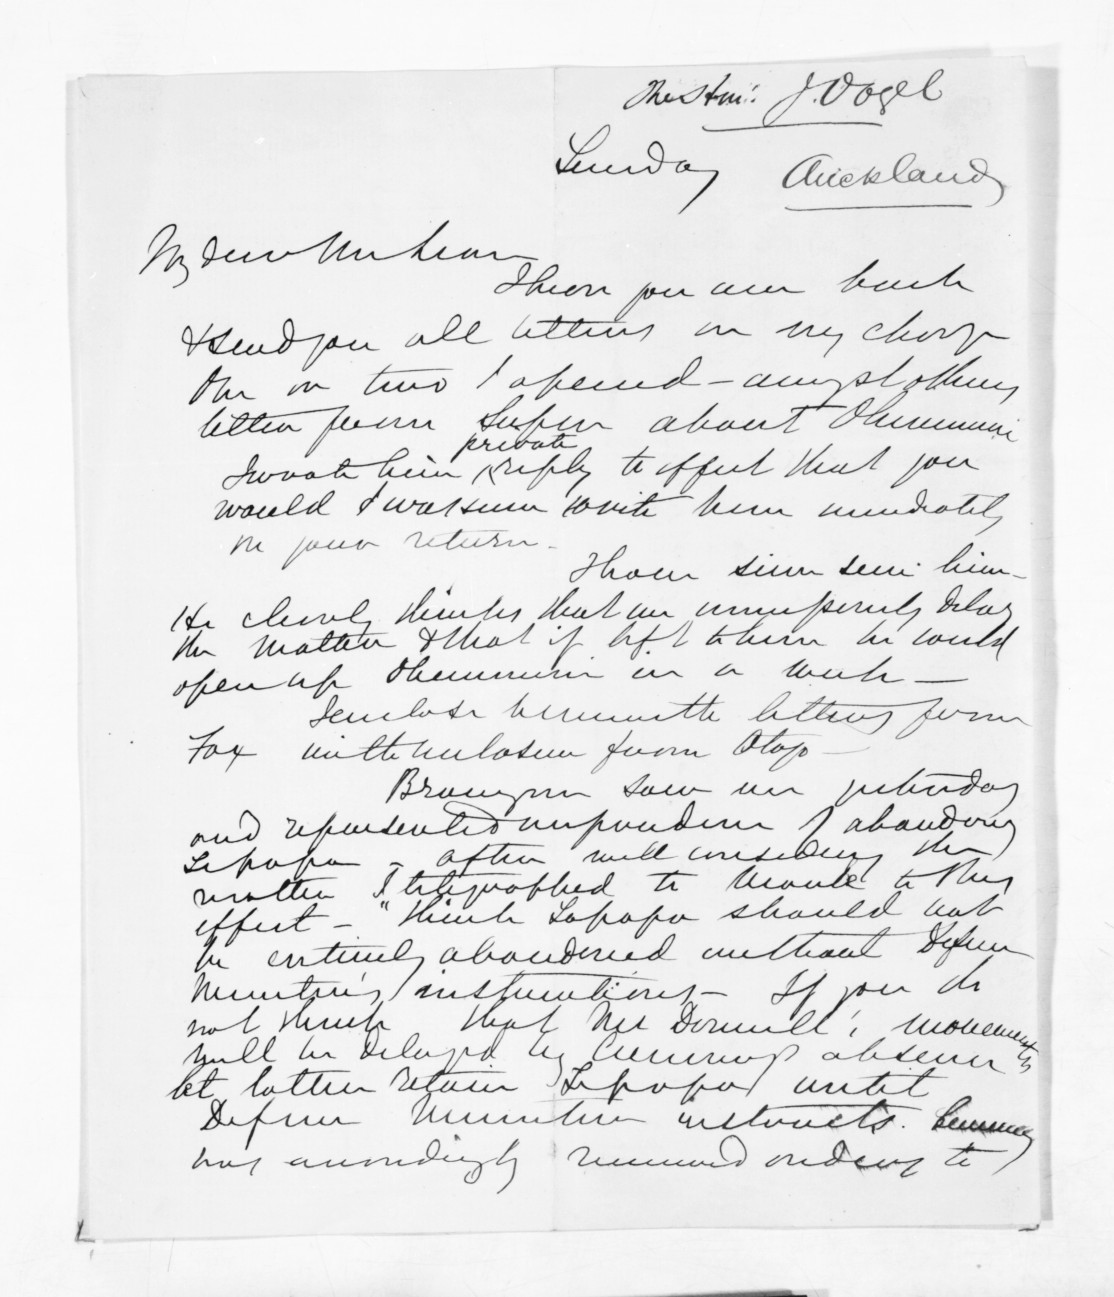 The Hon: J. Vogel
Sunday Auckland
My dear McLean
I hear you are back
& send you all letters in my charge
One or two I opened – amongst others
letter from Super about Ohinemuri
I wrote him private reply to effect that you
would I was sure write him immediately
on your return –
I have since seen him –
He clearly thinks that we unnecessarily delay
the matter & that if left to him he could
open up Ohinemuri in a week –
I enclose herewith letters from
Fox with enclosure from Otago –
Branigan saw me yesterday
and represented imprudence of abandoning
Tapapa – after well considering the
matter I telegraphed to Moule to this
effect – "Think Tapapa should not
be entirely abandoned without Defence
Minister's instructions – If you do
not think that McDonnell's movements
will be delayed by Cumming's absence
let latter retain Tapapa until
Defence Minister instructs. Cumming
has accordingly received orders to